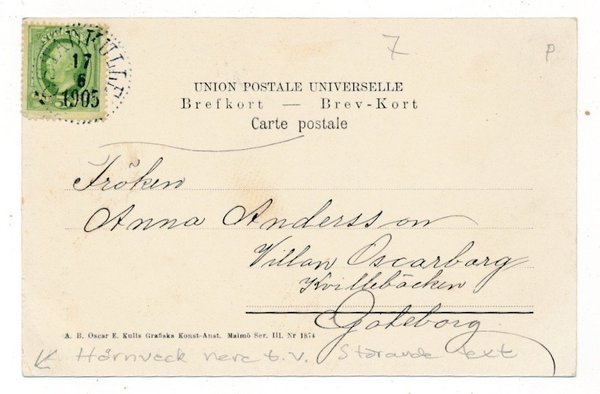 KULLE
17
6
1905
7
P
UNION POSTALE UNIVERSELLE
Brefkort — Brev-Kort
Carte postale
Fröken
Anna Andersson
Villan Oscarborg
Kvillebäcken
Göteborg
A. B. Oscar E. Kulls Grafiska Konst-Anst. Malmö Ser. III. Nr 1874
Hörnveck nere t.v. Störande text